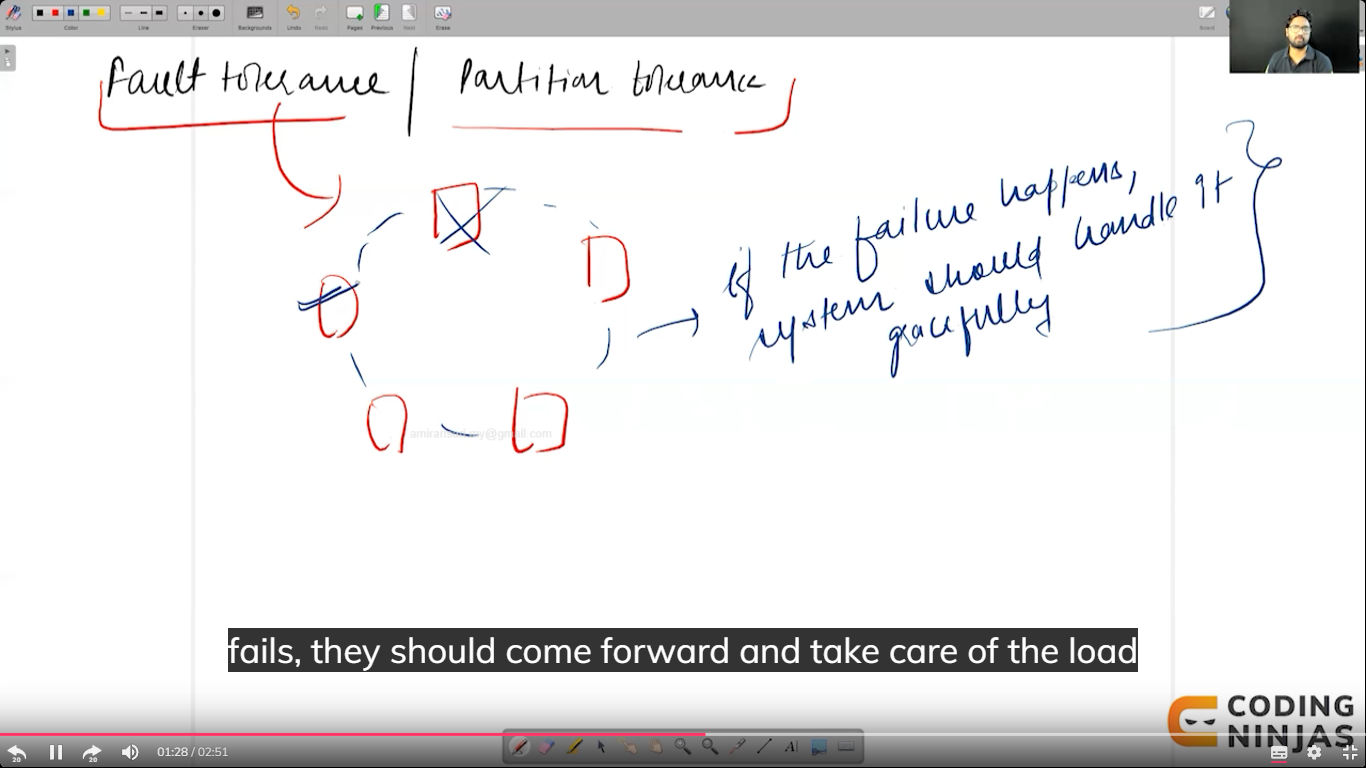 Stylus
Color
Line
Eraser
Backgrounds
Undo
Redo
Pages
Previous
Next
Erase
Board
Fault tolerance | Partition tolerance
if the failure happens,
system should handle it
gracefully
fails, they should come forward and take care of the load
CODING
NINJAS
20
20
01:28 / 02:51